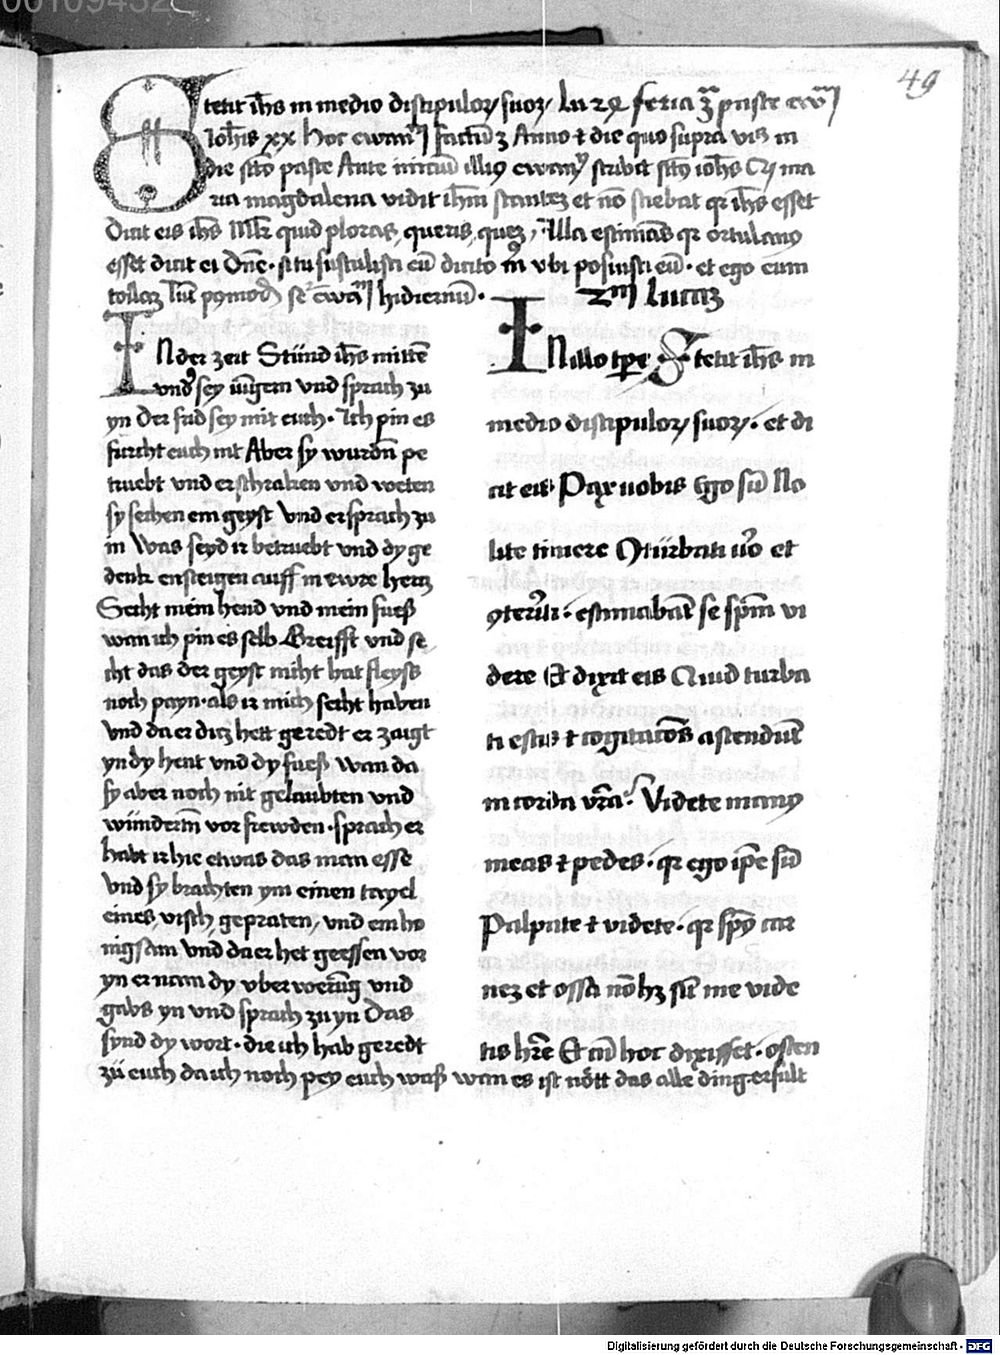 49
Stetit ih̄s in medio discipuloꝝ suoꝝ lu 24 feria 3ª pasce ewāl
Ioh̄is xx Hoc ewāngl factū ꝫ Anno ⁊ die quo supra vis in
die scō pasce Ante iniciū illiꝰ ewanꝭ scribit scꝰ ioh̄s Cꝫ ma
ria magdalena vidit ih̄m stantez et nō sciebat qꝛ ih̄s esset
Dicit eis ih̄s Mlr̄ quid ploras, queris, quez, Illa estimās qꝛ ortulanꝰ
esset dicit ei Dn̄e · si tu sustulisti eū dicito m̄ vbi posuisti eū · et ego eum
tollaz hidiernū ·
In der zeit Stünd ih̄s mittē
vnd̓ sey iūgern vnd sprach zu
yn Der frid sey mit euch · Ich pin es
fürcht euch nit Aber sy wurdn̄ pe
truebt vnd erschraken vnd weten
sy sechen ein geyst Vnd er sprach zu
in Was seyd ir betruebt vnd dy ge
denk ensteigen auff in ewre hercz
Secht mein hend vnd mein fueß
wan ich pin es selb Greifft vnd se
cht das der geyst nicht hat fleysch
noch payn · als ir mich secht haben
Vnd da er dicz hett geredt er zaigt
yn dy hent vnd dy fueß Wan da
sy aber noch nit gelaubten vnd
wündertn̄ vor frewden · sprach er
habt ir hie etwas das man esse
Vnd sy brachten ym einen tayel
eines, visch, gepraten, vnd ein ho
nigsam vnd da er het geessen vor
yn er nam dy vberwerūg vnd
gabs yn vnd sprach zu yn Das
synd dy wort · die ich hab geredt
zü euch da ich noch pey euch waß wan es ist nött das alle ding erfult
lucaz
In illo tp̄e Stetit ih̄s in
medio discipuloꝝ suoꝝ · et di
cit eis Pax uobis Ego sū No
lite timere Ꝯtürbati u̓o et
ꝯterr̓iti · estimabāt se sp̄m vi
dere Et dixit eis Quid turba
ti estis ⁊ cogitacōēs ascendūt
in corda vr̄a · Videte manꝰ
meas ⁊ pedes · qꝛ ego ip̄e sū
Palpate ⁊ videte · qꝛ sp̄ꝰ car
nez et ossa nō hꝫ sic̄ me vide
tis hr̄e Et cū hoc dixisset · osten
Digitalisierung gefördert durch die Deutsche Forschungsgemeinschaft - DFG